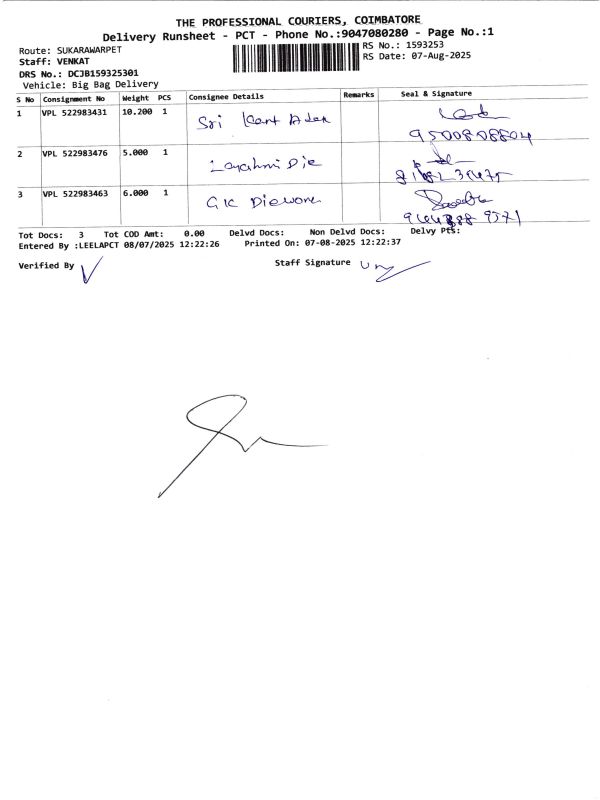 THE PROFESSIONAL COURIERS, COIMBATORE
Delivery Runsheet - PCT - Phone No.:9047080280 - Page No.:1
Route: SUKARAWARPET
RS No.: 1593253
Staff: VENKAT
RS Date: 07-Aug-2025
DRS No.: DCJB159325301
Vehicle: Big Bag Delivery
S No Consignment No Weight PCS Consignee Details Remarks Seal & Signature
1 VPL 522983431 10.200 1 Sri
9500808804
2 VPL 522983476 5.000 1 Laxshmi Die
3 VPL 522983463 6.000 1 GK Diework
Tot Docs: 3 Tot COD Amt: 0.00 Delvd Docs: Non Delvd Docs: Delvy Pts:
Entered By :LEELAPCT 08/07/2025 12:22:26 Printed On: 07-08-2025 12:22:37
Verified By
Staff Signature